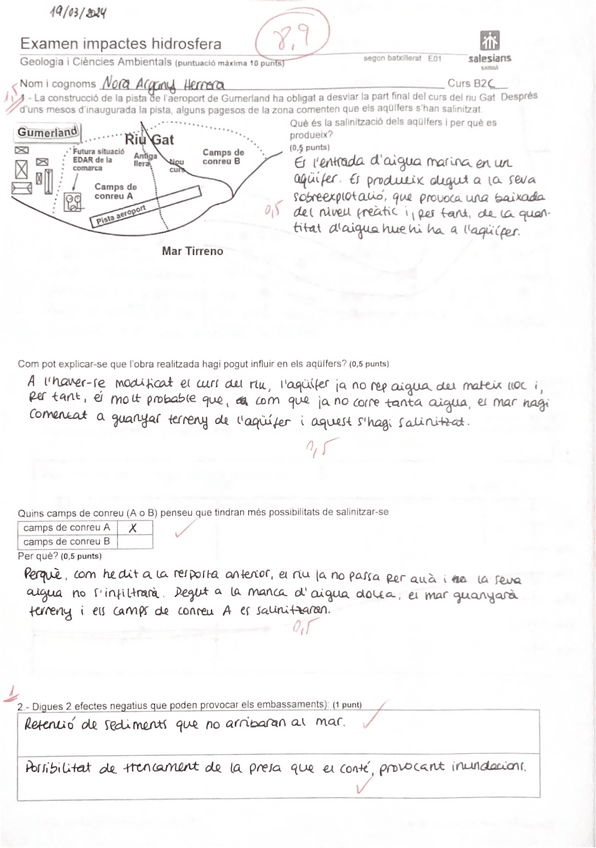 19/03/2024
8,9
Examen impactes hidrosfera
Geologia i Ciències Ambientals (puntuació màxima 10 punts)
segon batxillerat E01
salesians
SARRIÀ
Nom i cognoms Nora Argany Herrera Curs B2C
1,5
1 - La construcció de la pista de l'aeroport de Gumerland ha obligat a desviar la part final del curs del riu Gat. Després
d'uns mesos d'inaugurada la pista, alguns pagesos de la zona comenten que els aqüífers s'han salinitzat.
Gumerland
Riu Gat
Futura situació
EDAR de la
comarca
Antiga
llera
Nou
curs
Camps de
conreu B
Camps de
conreu A
Pista aeroport
Mar Tirreno
Què és la salinització dels aqüífers i per què es
produeix?
(0,5 punts)
És l'entrada d'aigua marina en un
aqüífer. Es produeix degut a la seva
sobreexplotació, que provoca una baixada
del nivell freàtic i, per tant, de la quan-
titat d'aigua que hi ha a l'aqüífer.
0,5
Com pot explicar-se que l'obra realitzada hagi pogut influir en els aqüífers? (0,5 punts)
A l'haver-se modificat el curs del riu, l'aqüífer ja no rep aigua del mateix lloc i,
per tant, és molt probable que, com que ja no corre tanta aigua, el mar hagi
començat a guanyar terreny de l'aqüífer i aquest s'hagi salinitzat.
0,5
Quins camps de conreu (A o B) penseu que tindran més possibilitats de salinitzar-se
camps de conreu A X
camps de conreu B
Per què? (0,5 punts)
Perquè, com he dit a la resposta anterior, el riu ja no passa per allà i la seva
aigua no s'infiltrarà. Degut a la manca d'aigua dolça, el mar guanyarà
terreny i els camps de conreu A es salinitzaran.
0,5
1
2.- Digues 2 efectes negatius que poden provocar els embassaments): (1 punt)
Retenció de sediments que no arribaran al mar.
Possibilitat de trencament de la presa que el conté, provocant inundacions.